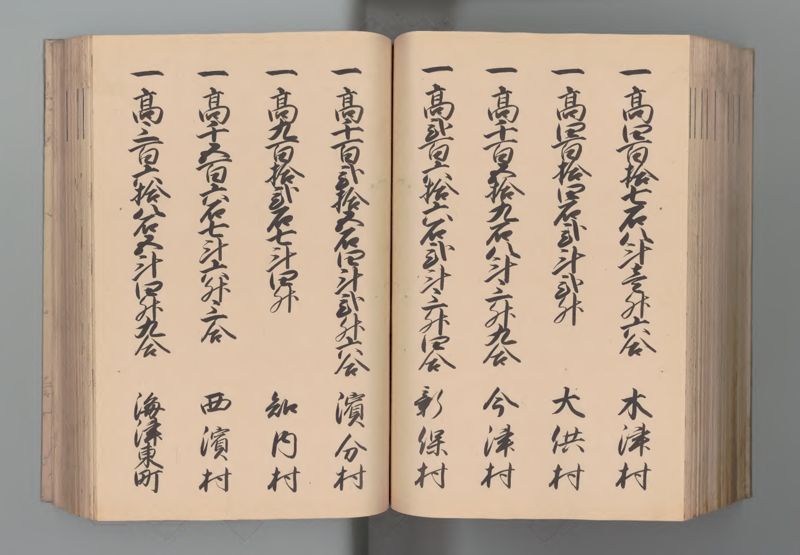 一高四百拾七石八斗壱升六合 木津村
一高四百拾四石弐斗弐升 大供村
一高千百五拾九石八斗三升九合 今津村
一高弐百六拾六石弐斗三升四合 新保村
一高千百弐拾五石四斗弐升六合 濱分村
一高九百拾弐石七斗四升 知内村
一高千五百六石七斗六升三合 西濱村
一高三百六拾八石五斗四升九合 海津東町